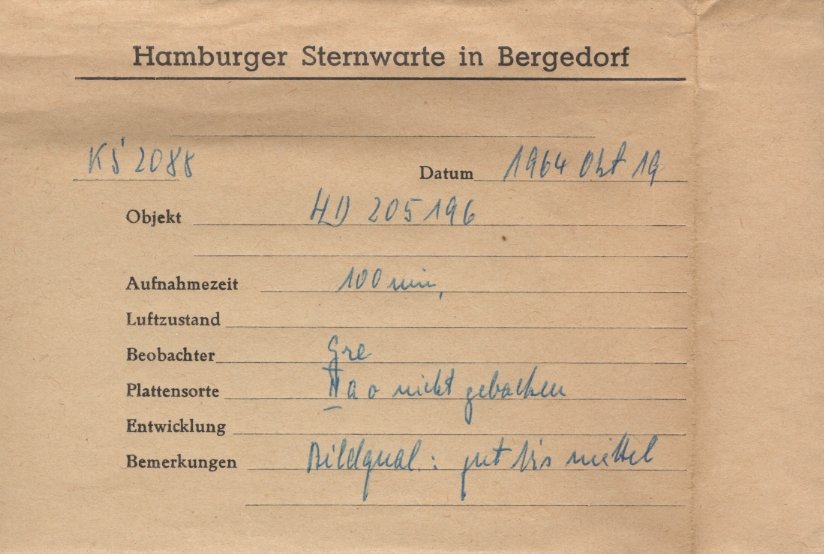 Hamburger Sternwarte in Bergedorf
KS 2088 Datum 1964 Okt 19
Objekt HD 205196
Aufnahmezeit 100 min,
Luftzustand
Beobachter Gre
Plattensorte IIa o nicht gebacken
Entwicklung
Bemerkungen Bildqual.: gut bis mittel